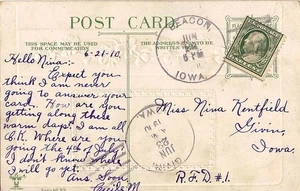 POST CARD
THIS SPACE MAY BE USED
FOR COMMUNICATION
THE ADDRESS ONLY TO
BE WRITTEN
BEACON
JUN
5 PM
IOWA.
6-21-10.
Hello Nina:-
Expect you
think I am never
going to answer your
card. How are you
getting along these
warm days. I am all
O.K. Where are you
going the 4th of July?
I don't know where
I will go yet.
Ans. Soon
Miss Nina Kentfield
Givin,
Iowa.
R.F.D. #1.
JUN
22
IOWA